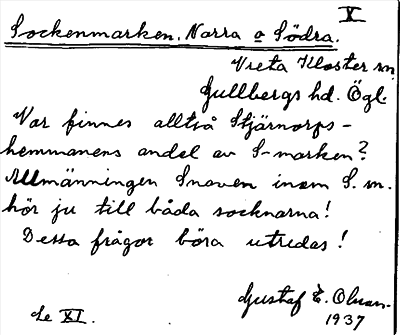 X
Sockenmarken. Norra o Södra.
Vreta Kloster sn.
Gullbergs hd. Ögl.
Var finnes alltså Stjärnorps-
hemmanens andel av S-marken?
Allmänningen inom S. sn.
hör ju till båda socknarna!
Dessa frågor böra utredas!
Gustaf E. Olsson.
1937
Se XI.